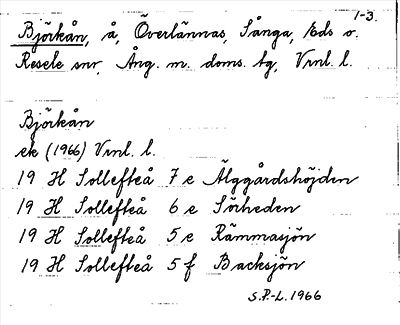 1-3.
Björkån, å, Överlännäs, Sånga, Eds o.
Resele snr, Ång. m. doms. tg, Vrnl. l.
Björkån
ek (1966) Vrnl. l.
19 H Sollefteå 7 e Älggårdshöjden
19 H Sollefteå 6 e Sörheden
19 H Sollefteå 5 e Rämmasjön
19 H Sollefteå 5 f Backsjön
S.P.-L. 1966